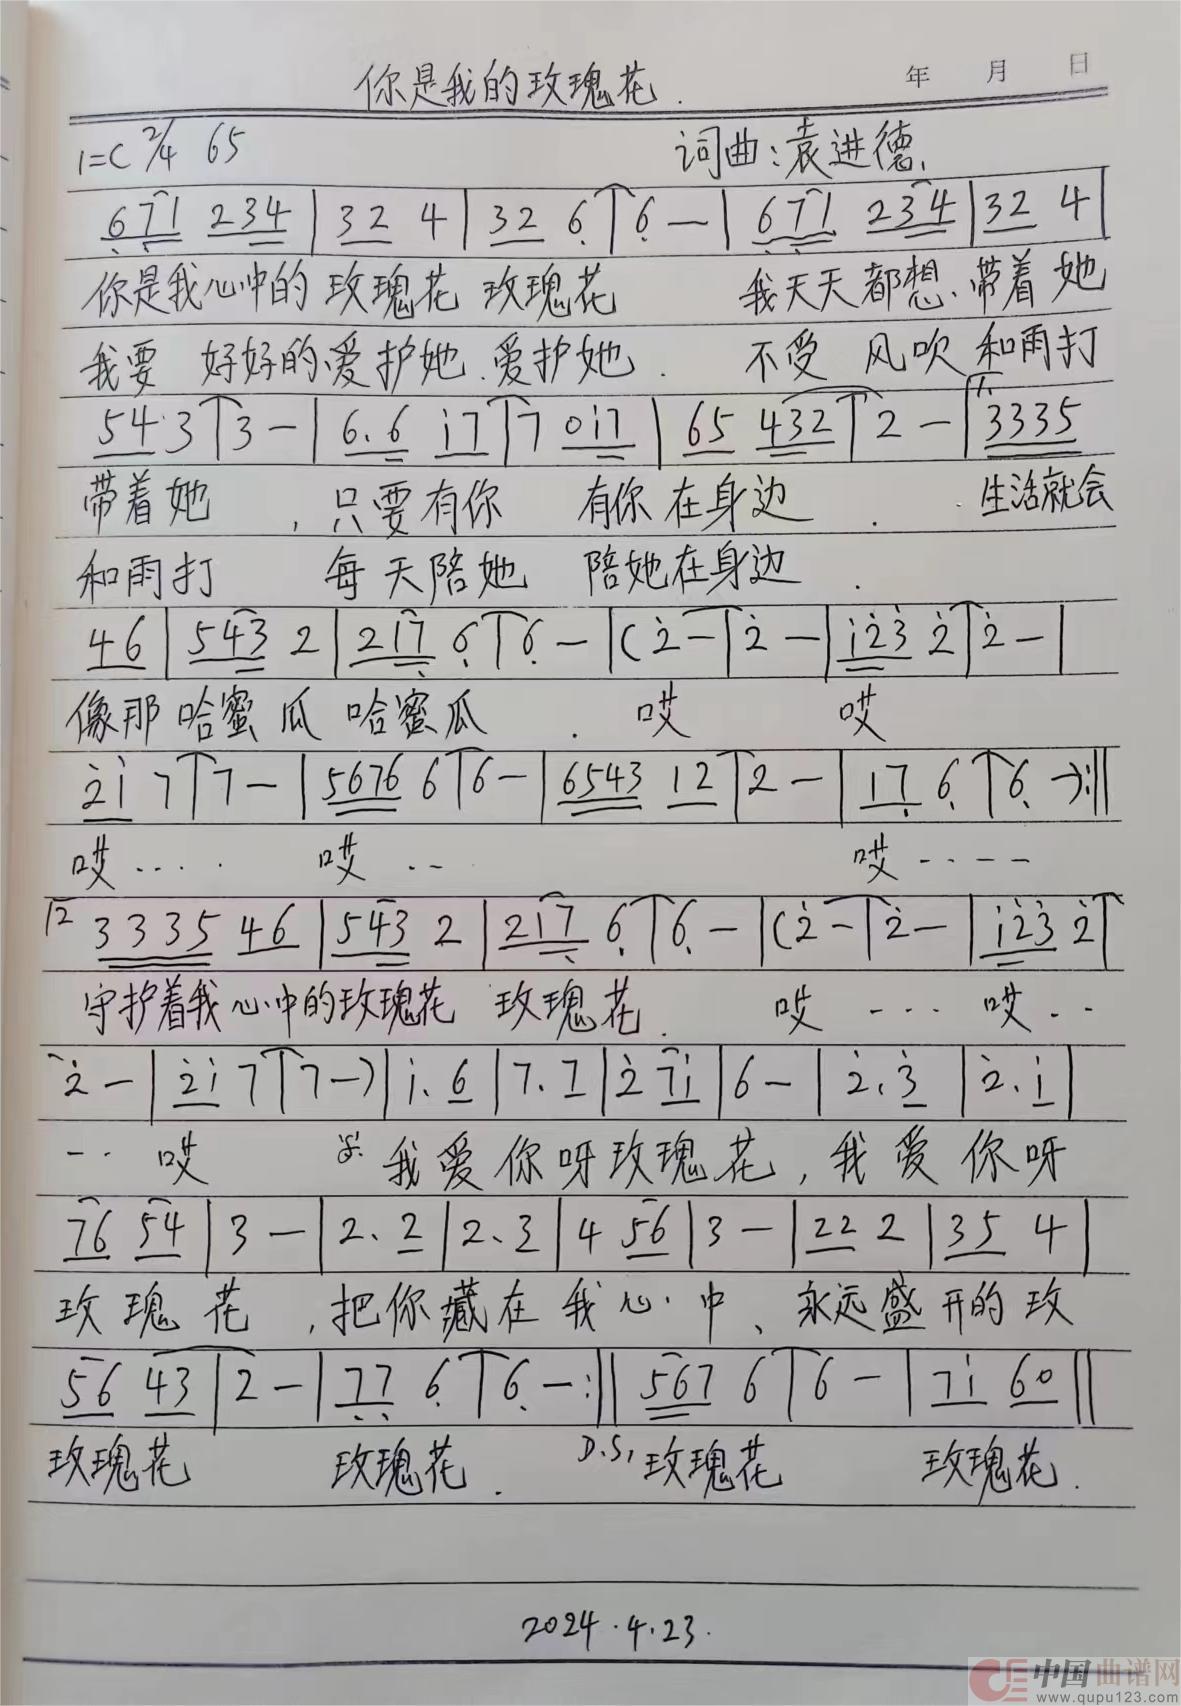 你是我的玫瑰花.
年 月 日
1=C 2/4 65 词曲:袁进德.
6 7 1 2 3 4 | 3 2 4 | 3 2 6 | 6 — | 6 7 1 2 3 4 | 3 2 4 |
你是我心中的玫瑰花 玫瑰花 我天天都想、带着她
我要 好好的、爱护她.爱护她. 不受 风吹和雨打
5 4· 3 | 3 — | 6. 6 i 7 | 7 0 i 7 | 6 5 4 3 2 | 2 — | 1. 3 3 3 5
带着她 , 只要有你 有你在身边 . 生活就会
和雨打 每天陪她 陪她在身边 .
4 6 | 5 4 3 2 | 2 1 7 6 | 6 — | ( 2 — | 2 — | i 2 3 2 | 2 — |
像那哈蜜瓜 哈蜜瓜 . 哎 哎
2 i 7 | 7 — | 5 6 7 6 6 | 6 — | 6 5 4 3 1 2 | 2 — | 1 7 6 | 6 — ) :||
哎 .... 哎 .. 哎 ----
12 3 3 3 5 4 6 | 5 4 3 2 | 2 1 7 6 | 6 — | ( 2 — | 2 — | i 2 3 2 |
守护着我心中的玫瑰花 玫瑰花. 哎 .... 哎 ..
2 — | 2 i 7 | 7 — ) | i. 6 | 7. 7 | 2 7 i | 6 — | 2. 3 | 2. i |
.. 哎 我爱你呀玫瑰花, 我爱你呀
7 6 5 4 | 3 — | 2. 2 | 2. 3 | 4 5 6 | 3 — | 2 2 2 | 3 5 4 |
玫瑰花 , 把你藏在我心中、永远盛开的玫
5 6 4 3 | 2 — | 7 7 6 | 6 — :|| 5 6 7 6 | 6 — | 7 i 6 0 ||
玫瑰花 玫瑰花. D.S. 玫瑰花 玫瑰花.
2024.4.23.
中国曲谱网
www.qupu123.com